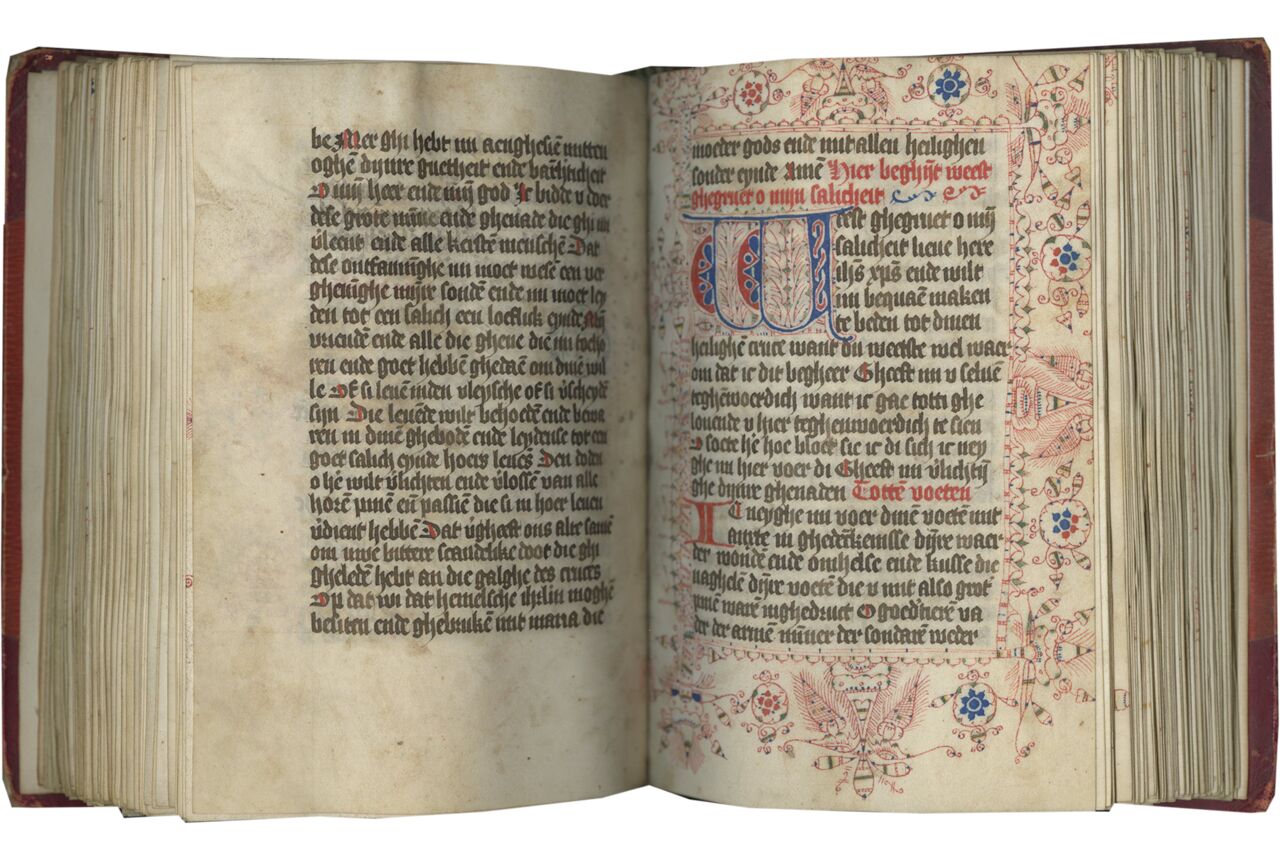 be Mer ghi hebt mi aenghesiē mitten
oghē dynre guetheit ende barmhticheit
O mijn heer ende mijn god Ic bidde v doer
dese grote mīne ende ghenade die ghi mi
vleent ende alle kerstē menschē Dat
dese ontfanninghe mi moet wesē een ver
gheuīghe mijnre sondē ende mi moet ley
den tot een salich een loeflick eynde Mijn
vriendē ende alle die ghene die mi toeho
ren ende goet hebbē ghedaē om dinē wil
le Of si leuē inden vleysche of si v̄scheydē
sijn Die leuēde wilt behoedē ende bewa
ren in dinē ghebodē ende leydense tot een
goet salich eynde hoers leuēs Den doden
o hē wilt v̄lichten ende v̄lossē van alle
horē pinē eñ passiē die si in hoer leuen
v̄dient hebbē Dat v̄gheeft ons alt samē
om uwe bittere scandelike doot die ghi
gheledē hebt an die galghe des cruces
Op dat wi dat hemelsche ihrlm moghē
besitten ende ghebrukē mit maria die
moeder gods ende mit allen heilighen
sonder eynde Amē Hier beghīt weest
ghegruet o mijn salicheit
Weest ghegruet o mijn
salicheit lieue here
ihūs xpūs ende wilt
mi bequaē maken
te beden tot dinen
heilighē cruce want du weetste wel waer
om dat ic dit begheer Gheeft mi v seluē
teghēwoerdich want ic gae totti ghe
louende v hier teghenwoerdich te sien
O soete hē hoe bloet sie ic di sich ic ney
ghe mi hier voer di Gheeft mi v̄lichtīghe
dijnre ghenaden Tottē voeten
Ic neyghe mi voer dinē voetē mit
lauxte in ghedēckenisse dijre waer
der wondē ende omhelse ende kusse die
naghelē dijre voetē die v mit also grot
pinē warē inghedruct O goedtierē va
der der armē mīner der sondarē weder